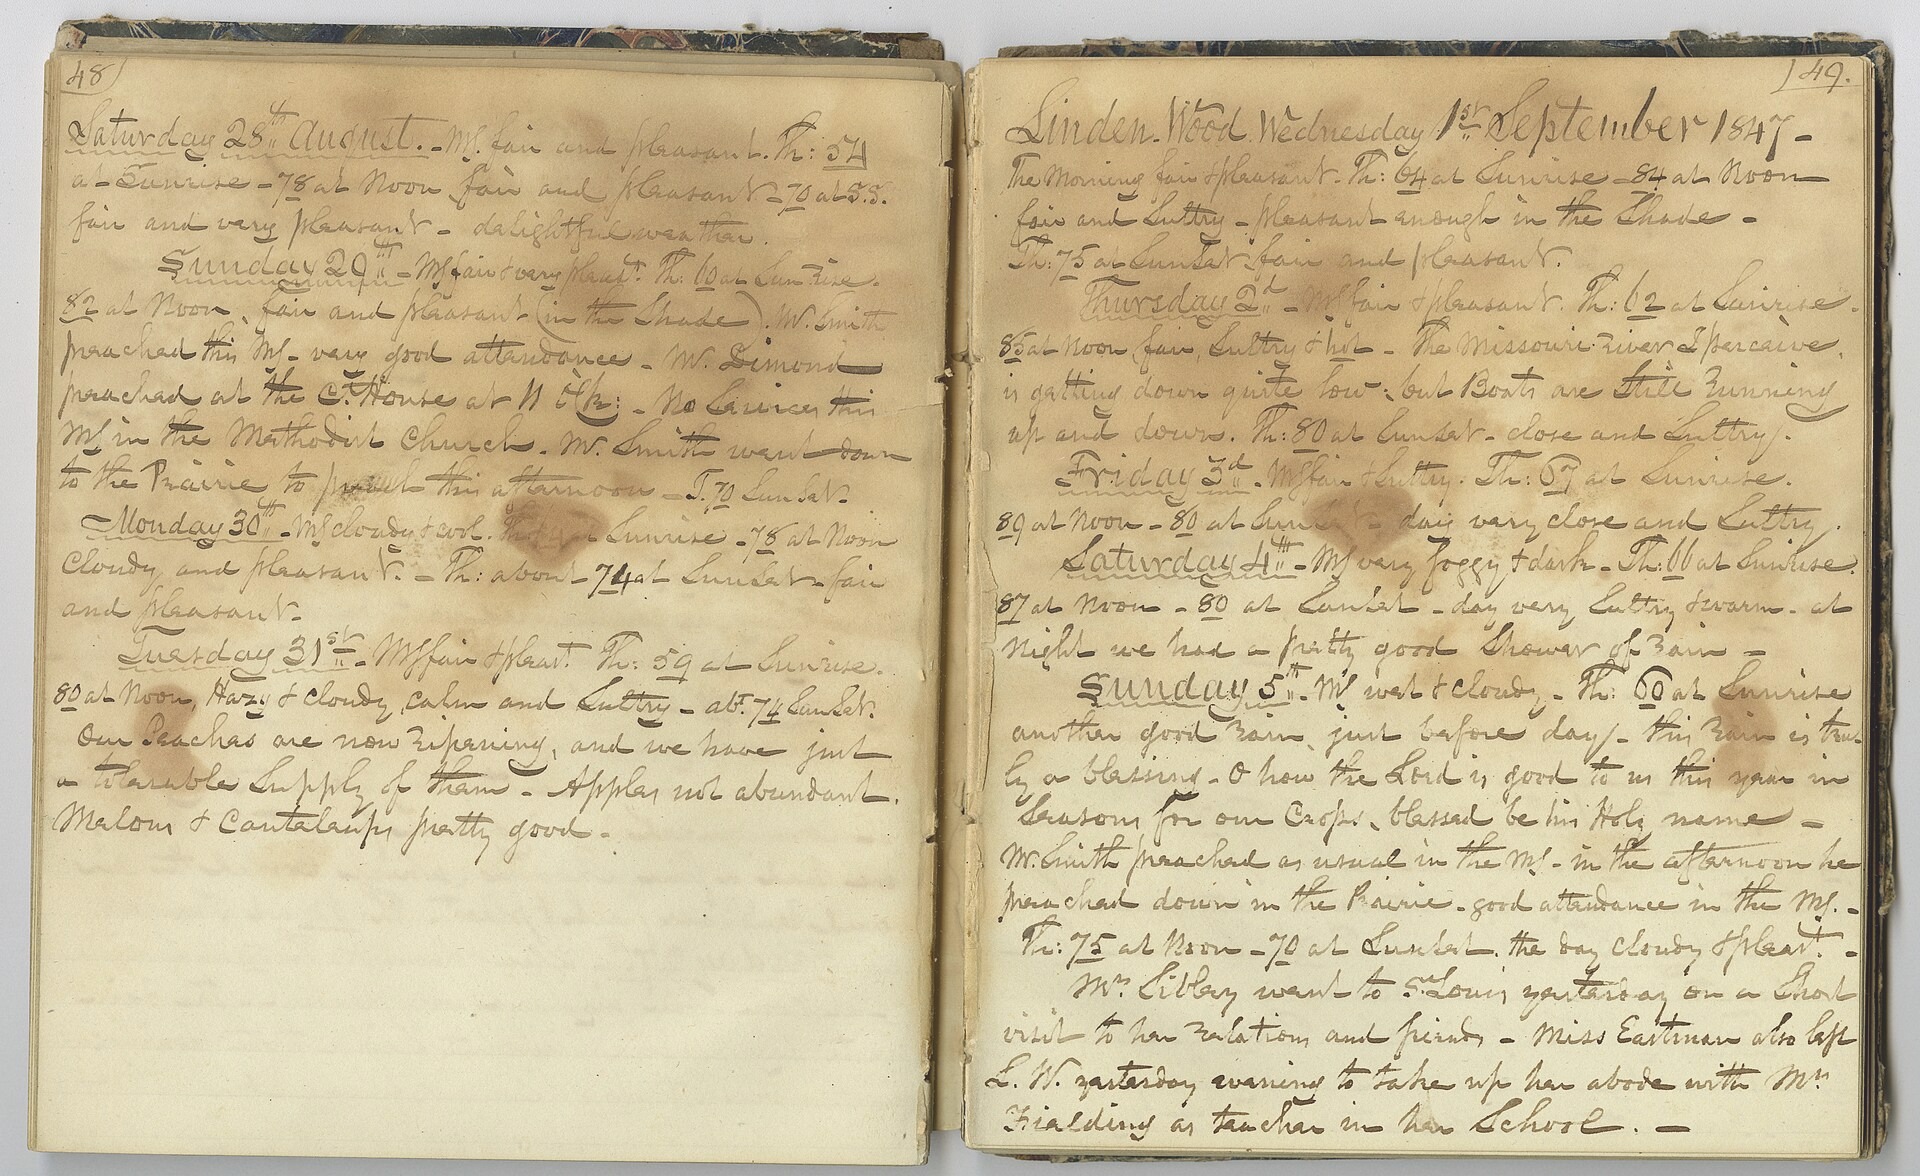 48)
Saturday 28th August. - Mg. fair and pleasant. Th: 54
at Sunrise - 78 at Noon fair and pleasant - 70 at S.S.
fair and very pleasant - delightful weather.
Sunday 29th - Mg fair & very pleast. Th: 60 at Sun Rise.
82 at Noon, fair and pleasant (in the Shade). Mr. Smith
preached this Mg - very good attendance - Mr. Dimond
preached at the Ct. House at 11 - No Services this
Mg in the Methodist Church. Mr. Smith went down
to the Prairie to preach this afternoon - T. 70 Sunset.
Monday 30th - Mg cloudy & cool. Sunrise - 78 at Noon
Cloudy and pleasant. - Th: about 74 at Sunset - fair
and pleasant -
Tuesday 31st - Mg fair & pleast. Th: 59 at Sunrise.
80 at Noon, Hazy & cloudy, calm and Sultry - abt. 74 Sunset.
Our Peaches are now ripening, and we have just
a tolerable Supply of them - Apples not abundant.
Melons & Cantaleups pretty good -
) 49.
Linden Wood Wednesday 1st September 1847 -
The Morning fair & pleasant - Th: 64 at Sunrise - 84 at Noon -
fair and Sultry - pleasant enough in the Shade -
Th: 75 at Sunset fair and pleasant.
Thursday 2d - Mg fair & pleasant. Th: 62 at Sunrise.
85 at Noon, fair, Sultry & hot - The Missouri River I perceive,
is getting down quite low; but Boats are still running
up and down. Th: 80 at Sunset - close and Sultry.
Friday 3d - Mg fair & Sultry. Th: 67 at Sunrise.
89 at Noon - 80 at Sunset - day very close and Sultry.
Saturday 4th - Mg very foggy & dark - Th: 66 at Sunrise.
87 at Noon - 80 at Sunset - day very Sultry & warm - at
Night we had a pretty good Shower of Rain -
Sunday 5th - Mg wet & cloudy - Th: 60 at Sunrise
another good Rain just before day - this Rain is tru-
ly a blessing - O how the Lord is good to us this year in
Seasons for our Crops, blessed be his Holy name -
Mr. Smith preached as usual in the Mg - in the afternoon he
preached down in the Prairie - good attendance in the Mg. -
Th: 75 at Noon - 70 at Sunset. the day cloudy & pleast. -
Mrs. Sibley went to St. Louis yesterday on a Short
visit to her relations and friends - Miss Eastman also left
L. W. yesterday evening to take up her abode with Mrs
Fielding as teacher in her School. -